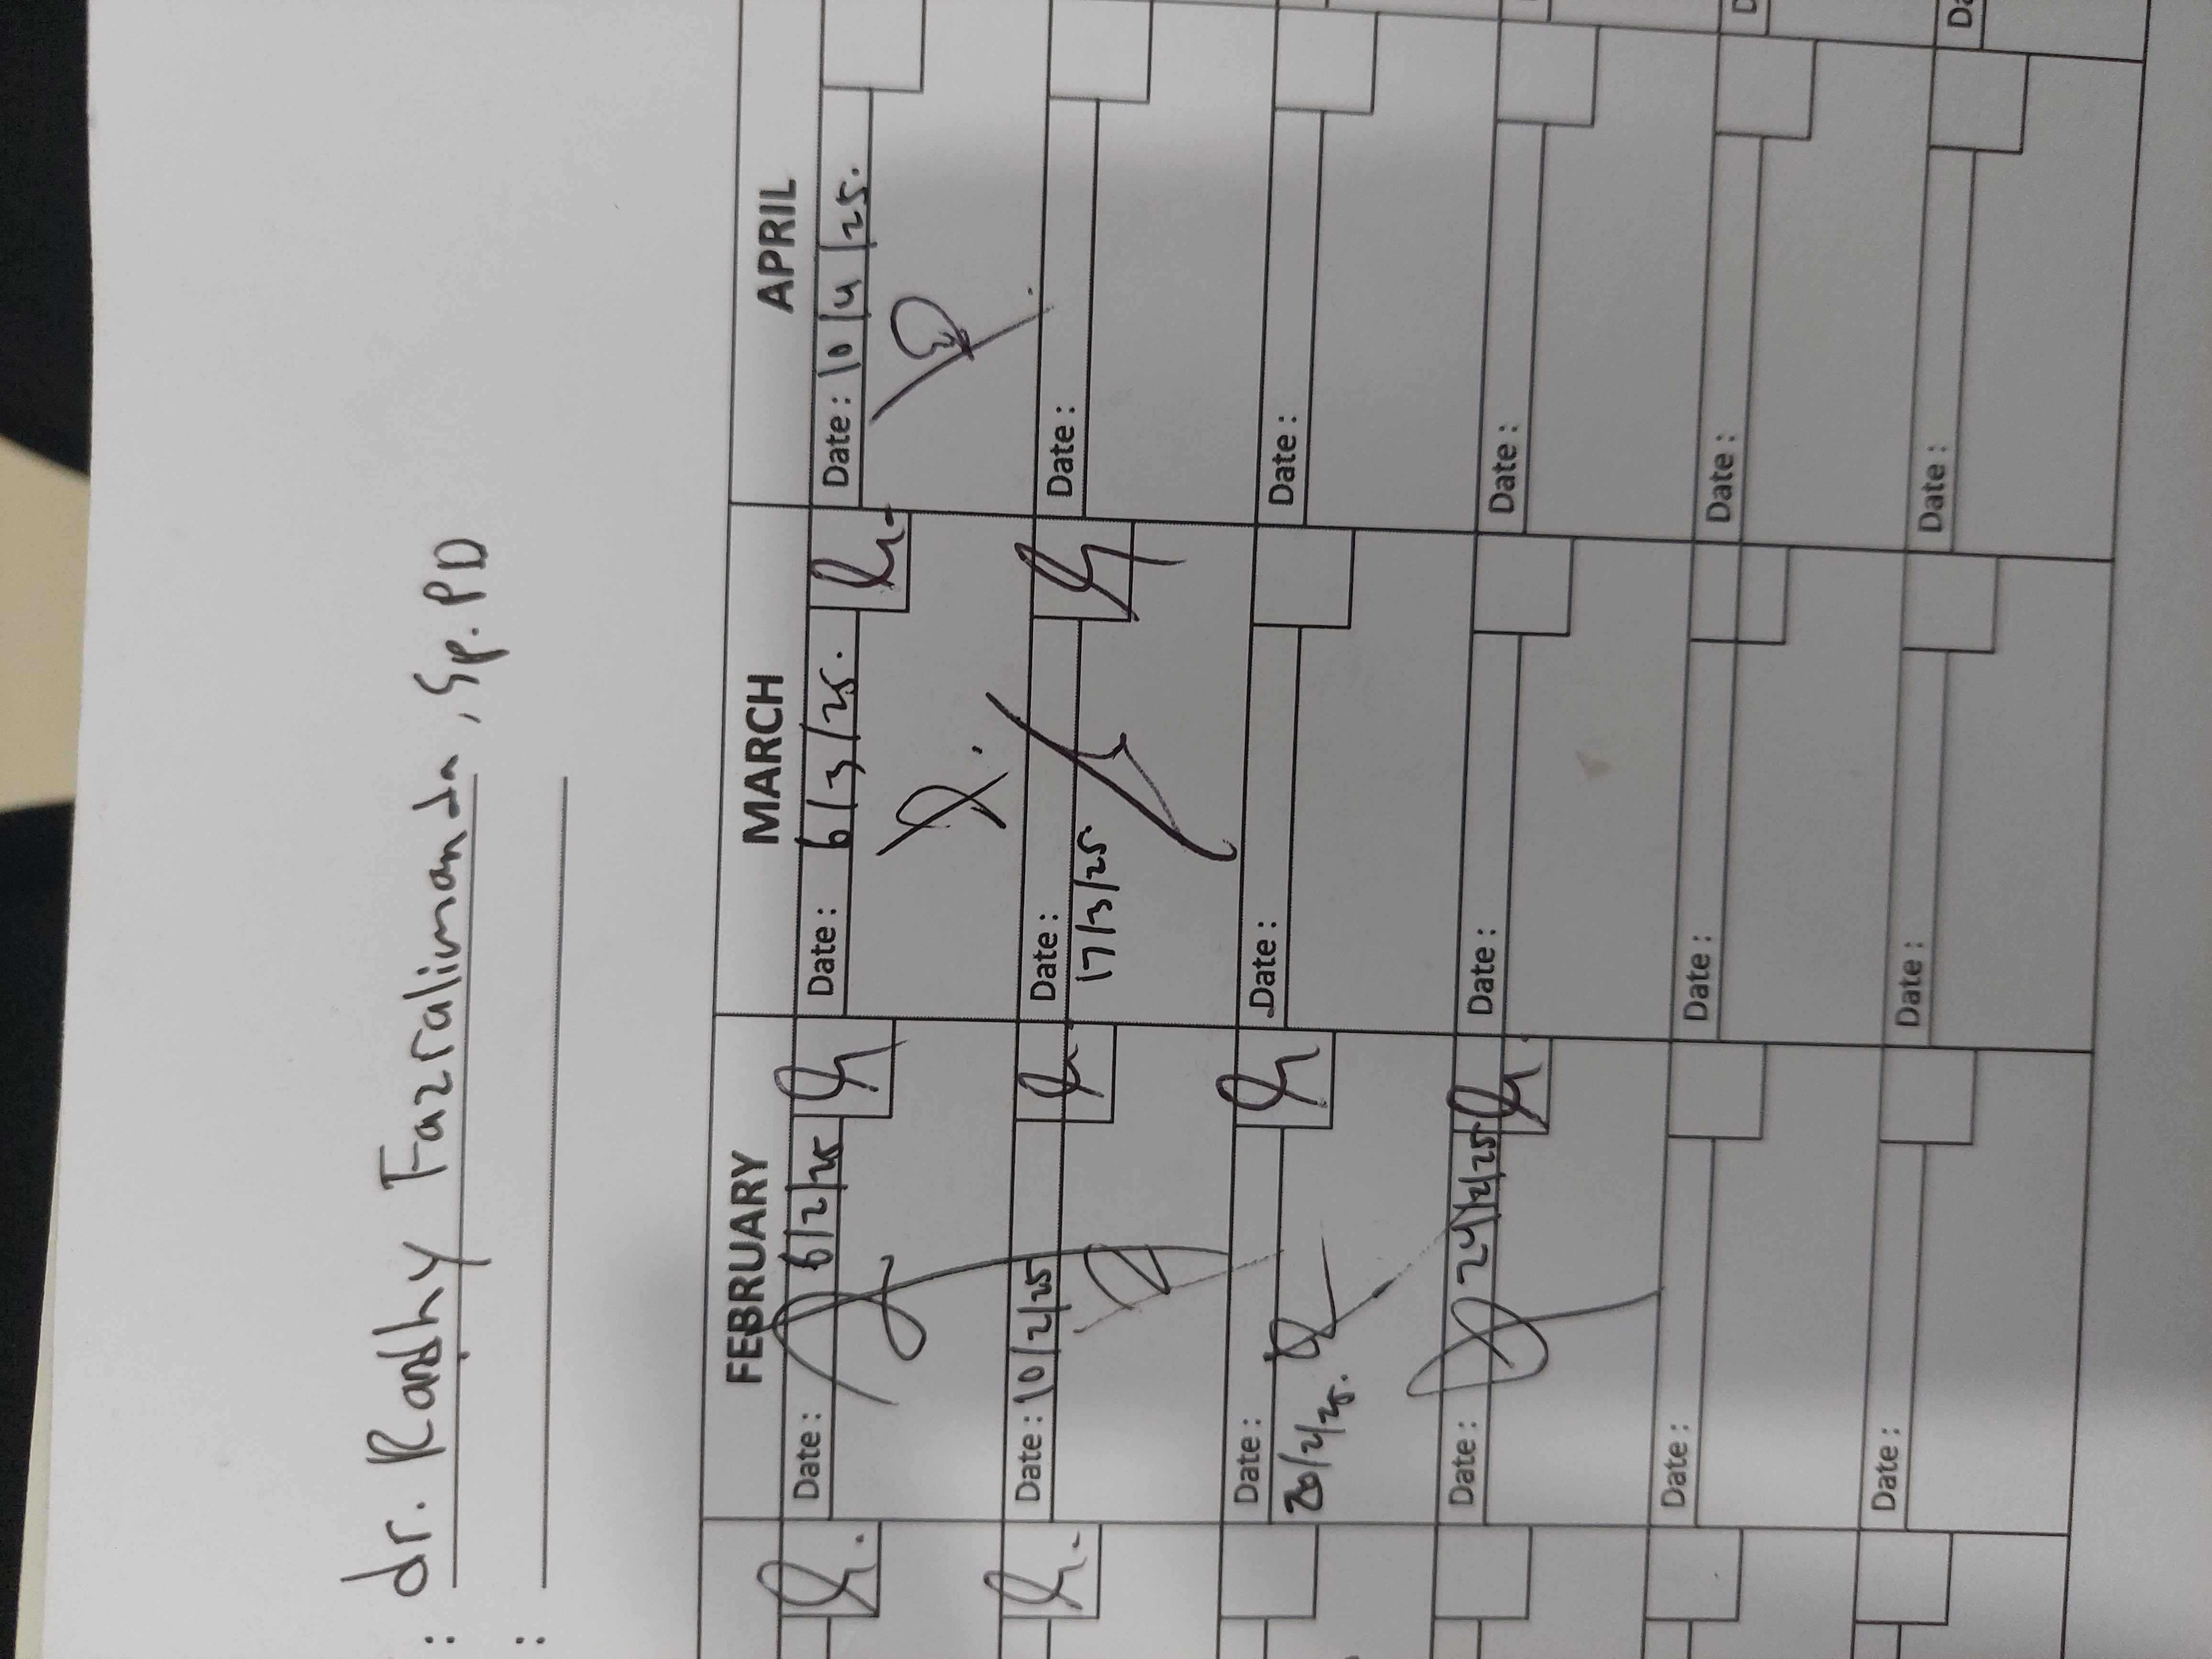 : dr. Randhy Fazralimanda, Sp.PD
:
FEBRUARY MARCH APRIL
Date : 6/2/25 Date : 6/3/25. Date : 10/4/25.
Date : 10/2/25 Date : 17/3/25 Date :
Date : 20/2/25. Date : Date :
Date : 24/2/25 Date : Date :
Date : Date : Date :
Date : Date : Date :